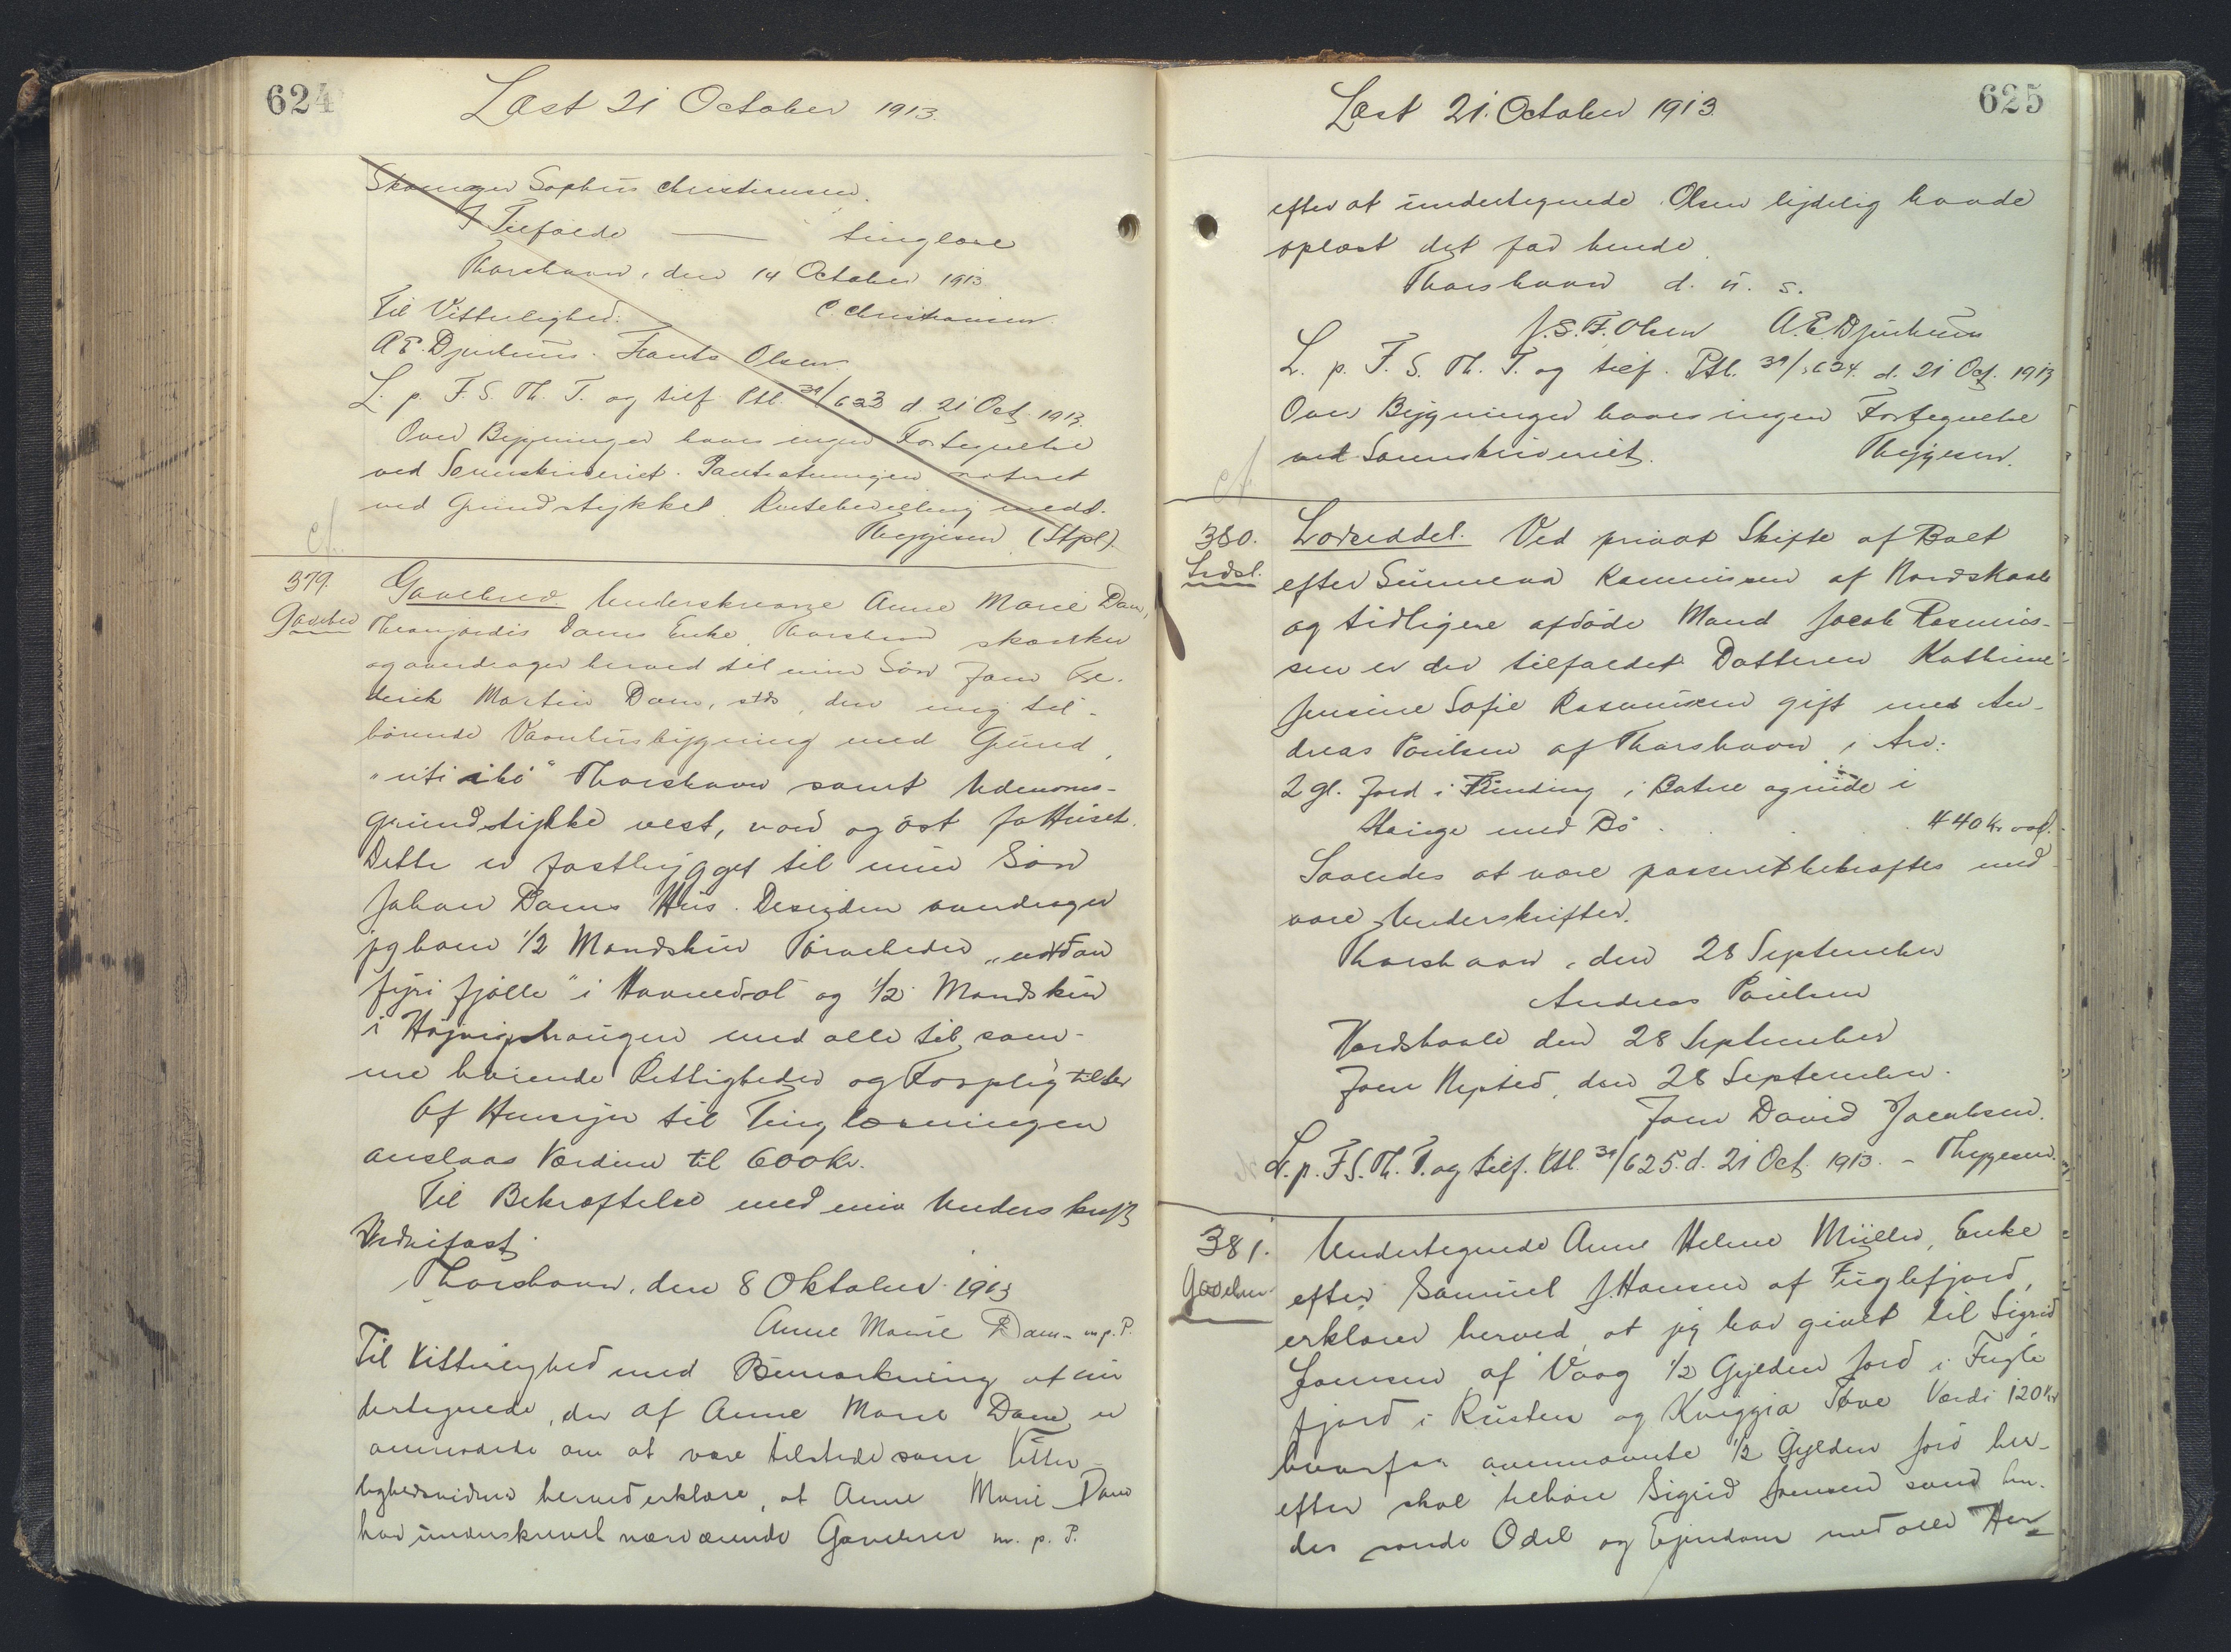 624
Læst 21 October 1913.
Skomager Sophus Christiansen.
I Tilfælde — tinglæse
Thorshavn, den 14 October 1913
Til Vitterlighed: C Christiansen
A E. Djurhuus. Frants Olsen
L. p. F. S. Th. T. og tilf Ptl. 39/623 d 21 Oct. 1913.
Over Bygninger haves ingen Fortegnelse
ved Sorenskriveriet. Pantsætningen noteret
ved Grundstykket. Rentebevilling medd.
Thygesen (Stpl).
379.
Gavebrev
Gavebrev. Underskrevne Anne Marie Dam,
Dams Enke, Thorshavn skænker
og overdrager herved til min Søn Joen Fre-
derik Martin Dam, stds, den mig til-
hørende Vaanhusbygning med Grund,
Thorshavn samt Udenoms-
grundstykke vest, nord og øst for Huset.
Dette er fastbygget til min Søn
Johan Dams Hus. Desuden overdrager
jeg ham 1/2 Mandskur Tørveheder
fyri fjølle" i Havnedal og 1/2 Mandskur
i med alle til sam-
me hørende Rettigheder og Forpligtelser
Af Hensyn til Tinglæsningen
anslaas Værdien til 600 Kr.
Til Bekræftelse med min Underskrift
Vidnefast.
Thorshavn, den 8 Oktober 1913
Anne Marie Dam - m. p. P.
Til Vitterlighed med Bemærkning at un
dertegnede, der af Anne Marie Dam er
anmodede om at være tilstede som Vitter-
lighedsvidner herved erklære, at Anne Marie Dam
har underskrevet nærværende Gavebrev m. p. P.
625
Læst 21. October 1913.
efter at undertegnede Olsen lydelig havde
oplæst det for hende.
Thorshavn d. u. s.
J. S. F. Olsen A. E. Djurhuus
L. p. F. S. Th. T. og tilf. Ptl. 39/624. d. 21 Oct. 1913
Over Bygninger haves ingen Fortegnelse
ved Sorenskriveriet. Thygesen.
380.
Lodsl.
Lodseddel. Ved privat Skifte af Boet
efter Sunneva Rasmussen af Nordskaale
og tidligere afdøde Mand Jacob Rasmus-
sen er der tilfaldet Datteren Kathrine
Jensine Sofie Rasmussen gift med An-
dreas Poulsen af Thorshavn i Arv:
2 gl. Jord i Funding i Batne og nide i
Hauge med Bø . . . 440 Kr
Saaledes at være passeret bekræftes med
vore Underskrifter.
Thorshavn, den 28 September
Andreas Poulsen
Nordskaale den 28 September
Joen Nysted, den 28 September.
Joen David Jacobsen.
L. p. F. S. Th. T. og tilf. Ptl. 39/625. d. 21 Oct. 1913. - Thygesen.
381.
Gavebrev
Undertegnede Anne Helene Müller, Enke
efter Samuel J. Hansen af Fuglefjord,
erklærer herved, at jeg har givet til Sigrid
Joensen af Vaag 1/2 Gylden Jord i Fugle
fjord i Rusten og Kveggia Tove Værdi 120 Kr
hvorfor ovennævnte 1/2 Gylden Jord her-
efter skal tilhøre Sigrid Joensen som hen-
des sande Odel og Ejendom med alle Her